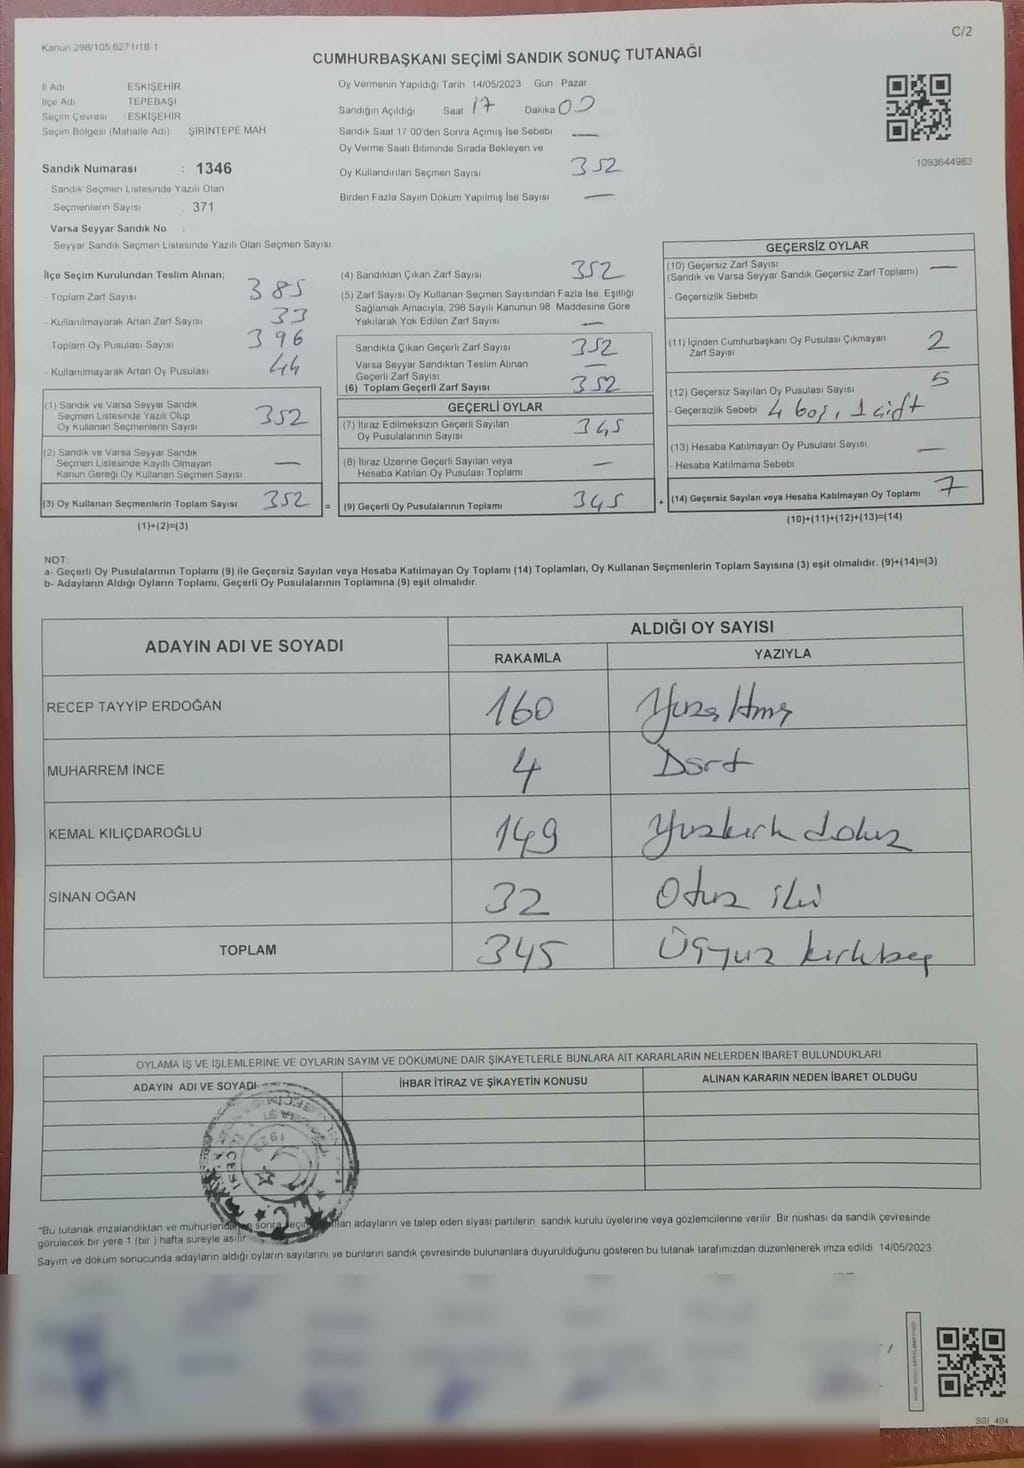 Kanun 298/105 6271/18-1
C/2
CUMHURBAŞKANI SEÇİMİ SANDIK SONUÇ TUTANAĞI
İl Adı ESKİŞEHİR
İlçe Adı TEPEBAŞI
Seçim Çevresi : ESKİŞEHİR
Seçim Bölgesi (Mahalle Adı) ŞİRİNTEPE MAH
Sandık Numarası : 1346
- Sandık Seçmen Listesinde Yazılı Olan
Seçmenlerin Sayısı : 371
Varsa Seyyar Sandık No :
- Seyyar Sandık Seçmen Listesinde Yazılı Olan Seçmen Sayısı
Oy Vermenin Yapıldığı Tarih 14/05/2023 Gün Pazar
Sandığın Açıldığı Saat 17 Dakika 00
Sandık Saat 17 00'den Sonra Açılmış İse Sebebi —
Oy Verme Saati Bitiminde Sırada Bekleyen ve
Oy Kullandırılan Seçmen Sayısı 352
Birden Fazla Sayım Döküm Yapılmış İse Sayısı —
1093644983
İlçe Seçim Kurulundan Teslim Alınan;
- Toplam Zarf Sayısı 385
- Kullanılmayarak Artan Zarf Sayısı 33
Toplam Oy Pusulası Sayısı 396
- Kullanılmayarak Artan Oy Pusulası 44
(1) Sandık ve Varsa Seyyar Sandık
Seçmen Listesinde Yazılı Olup
Oy Kullanan Seçmenlerin Sayısı 352
(2) Sandık ve Varsa Seyyar Sandık
Seçmen Listesinde Kayıtlı Olmayan
Kanun Gereği Oy Kullanan Seçmen Sayısı —
(3) Oy Kullanan Seçmenlerin Toplam Sayısı 352 =
(1)+(2)=(3)
(4) Sandıktan Çıkan Zarf Sayısı 352
(5) Zarf Sayısı Oy Kullanan Seçmen Sayısından Fazla İse, Eşitliği
Sağlamak Amacıyla, 298 Sayılı Kanunun 98 Maddesine Göre
Yakılarak Yok Edilen Zarf Sayısı —
Sandıkta Çıkan Geçerli Zarf Sayısı 352
Varsa Seyyar Sandıktan Teslim Alınan
Geçerli Zarf Sayısı —
(6) Toplam Geçerli Zarf Sayısı 352
GEÇERLİ OYLAR
(7) İtiraz Edilmeksizin Geçerli Sayılan
Oy Pusulalarının Sayısı 345
(8) İtiraz Üzerine Geçerli Sayılan veya
Hesaba Katılan Oy Pusulası Toplamı —
(9) Geçerli Oy Pusulalarının Toplamı 345 +
GEÇERSİZ OYLAR
(10) Geçersiz Zarf Sayısı
(Sandık ve Varsa Seyyar Sandık Geçersiz Zarf Toplamı) —
- Geçersizlik Sebebi
(11) İçinden Cumhurbaşkanı Oy Pusulası Çıkmayan
Zarf Sayısı 2
(12) Geçersiz Sayılan Oy Pusulası Sayısı 5
- Geçersizlik Sebebi 4 boş, 1 çift
(13) Hesaba Katılmayan Oy Pusulası Sayısı —
- Hesaba Katılmama Sebebi
(14) Geçersiz Sayılan veya Hesaba Katılmayan Oy Toplamı 7
(10)+(11)+(12)+(13)=(14)
NOT:
a- Geçerli Oy Pusulalarının Toplamı (9) ile Geçersiz Sayılan veya Hesaba Katılmayan Oy Toplamı (14) Toplamları, Oy Kullanan Seçmenlerin Toplam Sayısına (3) eşit olmalıdır. (9)+(14)=(3)
b- Adayların Aldığı Oyların Toplamı, Geçerli Oy Pusulalarının Toplamına (9) eşit olmalıdır.
ADAYIN ADI VE SOYADI ALDIĞI OY SAYISI
RAKAMLA YAZIYLA
RECEP TAYYİP ERDOĞAN 160 Yüzaltmış
MUHARREM İNCE 4 Dört
KEMAL KILIÇDAROĞLU 149 Yüzkırk dokuz
SİNAN OĞAN 32 Otuz iki
TOPLAM 345 Üçyüz kırkbeş
OYLAMA İŞ VE İŞLEMLERİNE VE OYLARIN SAYIM VE DÖKÜMÜNE DAİR ŞİKAYETLERLE BUNLARA AİT KARARLARIN NELERDEN İBARET BULUNDUKLARI
ADAYIN ADI VE SOYADI İHBAR İTİRAZ VE ŞİKAYETİN KONUSU ALINAN KARARIN NEDEN İBARET OLDUĞU
T.C.
"Bu tutanak imzalandıktan ve mühürlendikten sonra seçime katılan adayların ve talep eden siyasi partilerin sandık kurulu üyelerine veya gözlemcilerine verilir. Bir nüshası da sandık çevresinde
görülecek bir yere 1 (bir) hafta süreyle asılır
Sayım ve döküm sonucunda adayların aldığı oyların sayılarını ve bunların sandık çevresinde bulunanlara duyurulduğunu gösteren bu tutanak tarafımızdan düzenlenerek imza edildi 14/05/2023
SSI_404